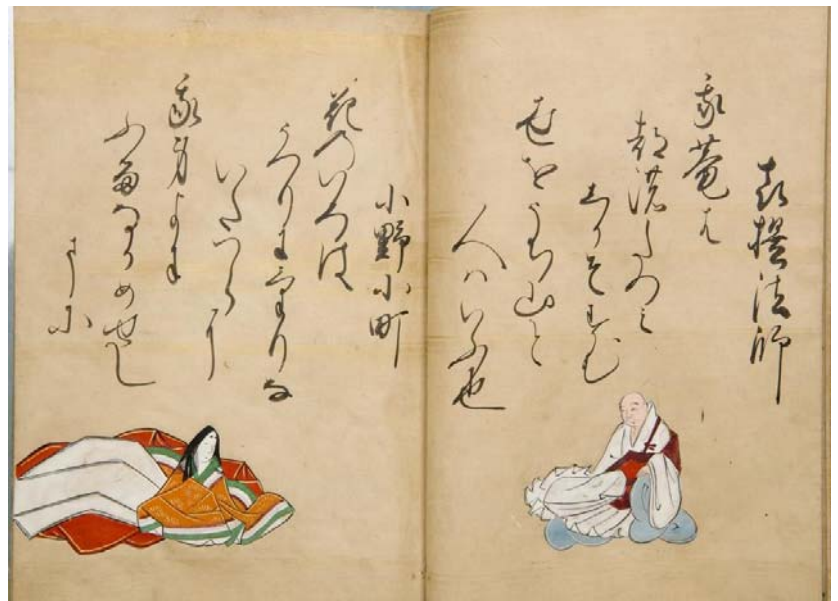 喜撰法師
我菴は
都濃たつみ
しかそすむ
世をうち山と
人ハいふ也
小野小町
花のいろは
うつりにけりな
いたつらに
我身よに
ふるなかめせし
まに